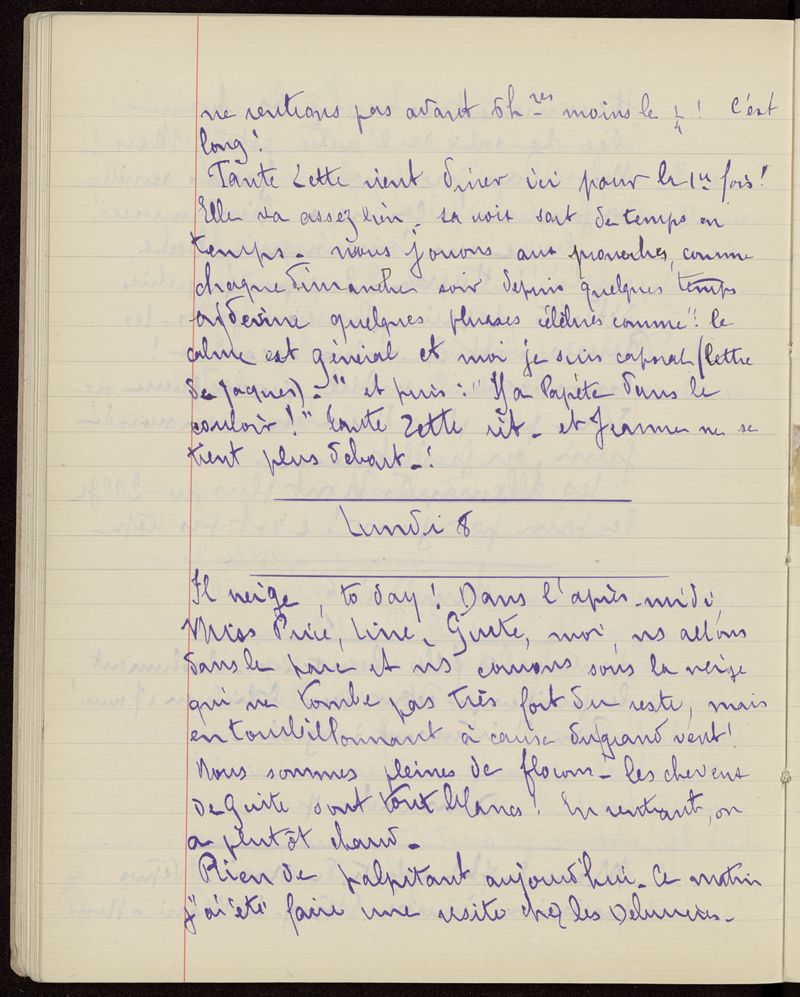 ne rentrons pas avant 5h res moins le 1/4 ! C'est
long !
Tante Zette vient dîner ici pour la 1re fois !
Elle va assez bien. sa voix sort de temps en
temps. nous jouons aux proverbes, comme
chaque dimanche soir depuis quelques temps
on devine quelques phrases célèbres comme " le
calme est général et moi je suis caporal (lettre
de Jaques) - " et puis : " Y'a Papète dans le
couloir ! " Tante Zette rit - et Jeanne ne se
tient plus debout - !
Lundi 8
Il neige, to day ! Dans l'après-midi,
Miss Price, Line, Guite, moi ns allons
dans le parc et ns courons sous la neige
qui ne tombe pas très fort du reste, mais
en tourbillonnant à cause du grand vent !
Nous sommes pleines de flocons - les cheveux
de Guite sont tout blancs ! En rentrant, on
a plutôt chaud -
Rien de palpitant aujourd'hui - Ce matin
j'ai été faire une visite chez les